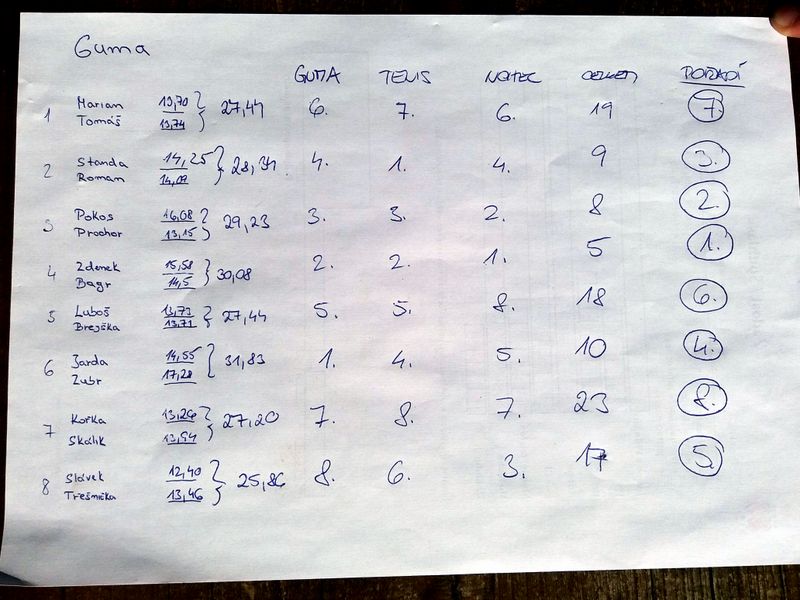 Guma
GUMA TENIS CELKEM POŘADÍ
1 Marian 13,70 27,44 6. 7. 6. 19 7.
Tomáš 13,74
2 Standa 14,25 28,34 4. 1. 4. 9 3.
Roman 14,09
3 Pokos 16,08 29,23 3. 3. 2. 8 2.
Prochor 13,15
4 Zdenek 15,58 30,08 2. 2. 1. 5 1.
Bagr 14,5
5 Luboš 13,73 27,44 5. 5. 8. 18 6.
Brejška 13,71
6 Jarda 14,55 31,83 1. 4. 5. 10 4.
Zubr 17,28
7 Korka 13,26 27,20 7. 8. 7. 23 8.
Skálik 13,94
8 Slávek 12,40 25,86 8. 6. 3. 17 5.
Třešnička 13,46